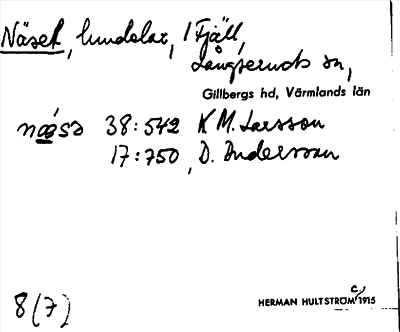 Näset, hundelar, i Fjäll,
Långseruds sn,
Gillbergs hd, Värmlands län
næ̀sə 38:542 K M. Larsson
17:750, D. Andersson
8(7)
HERMAN HULTSTRÖM c. 1915